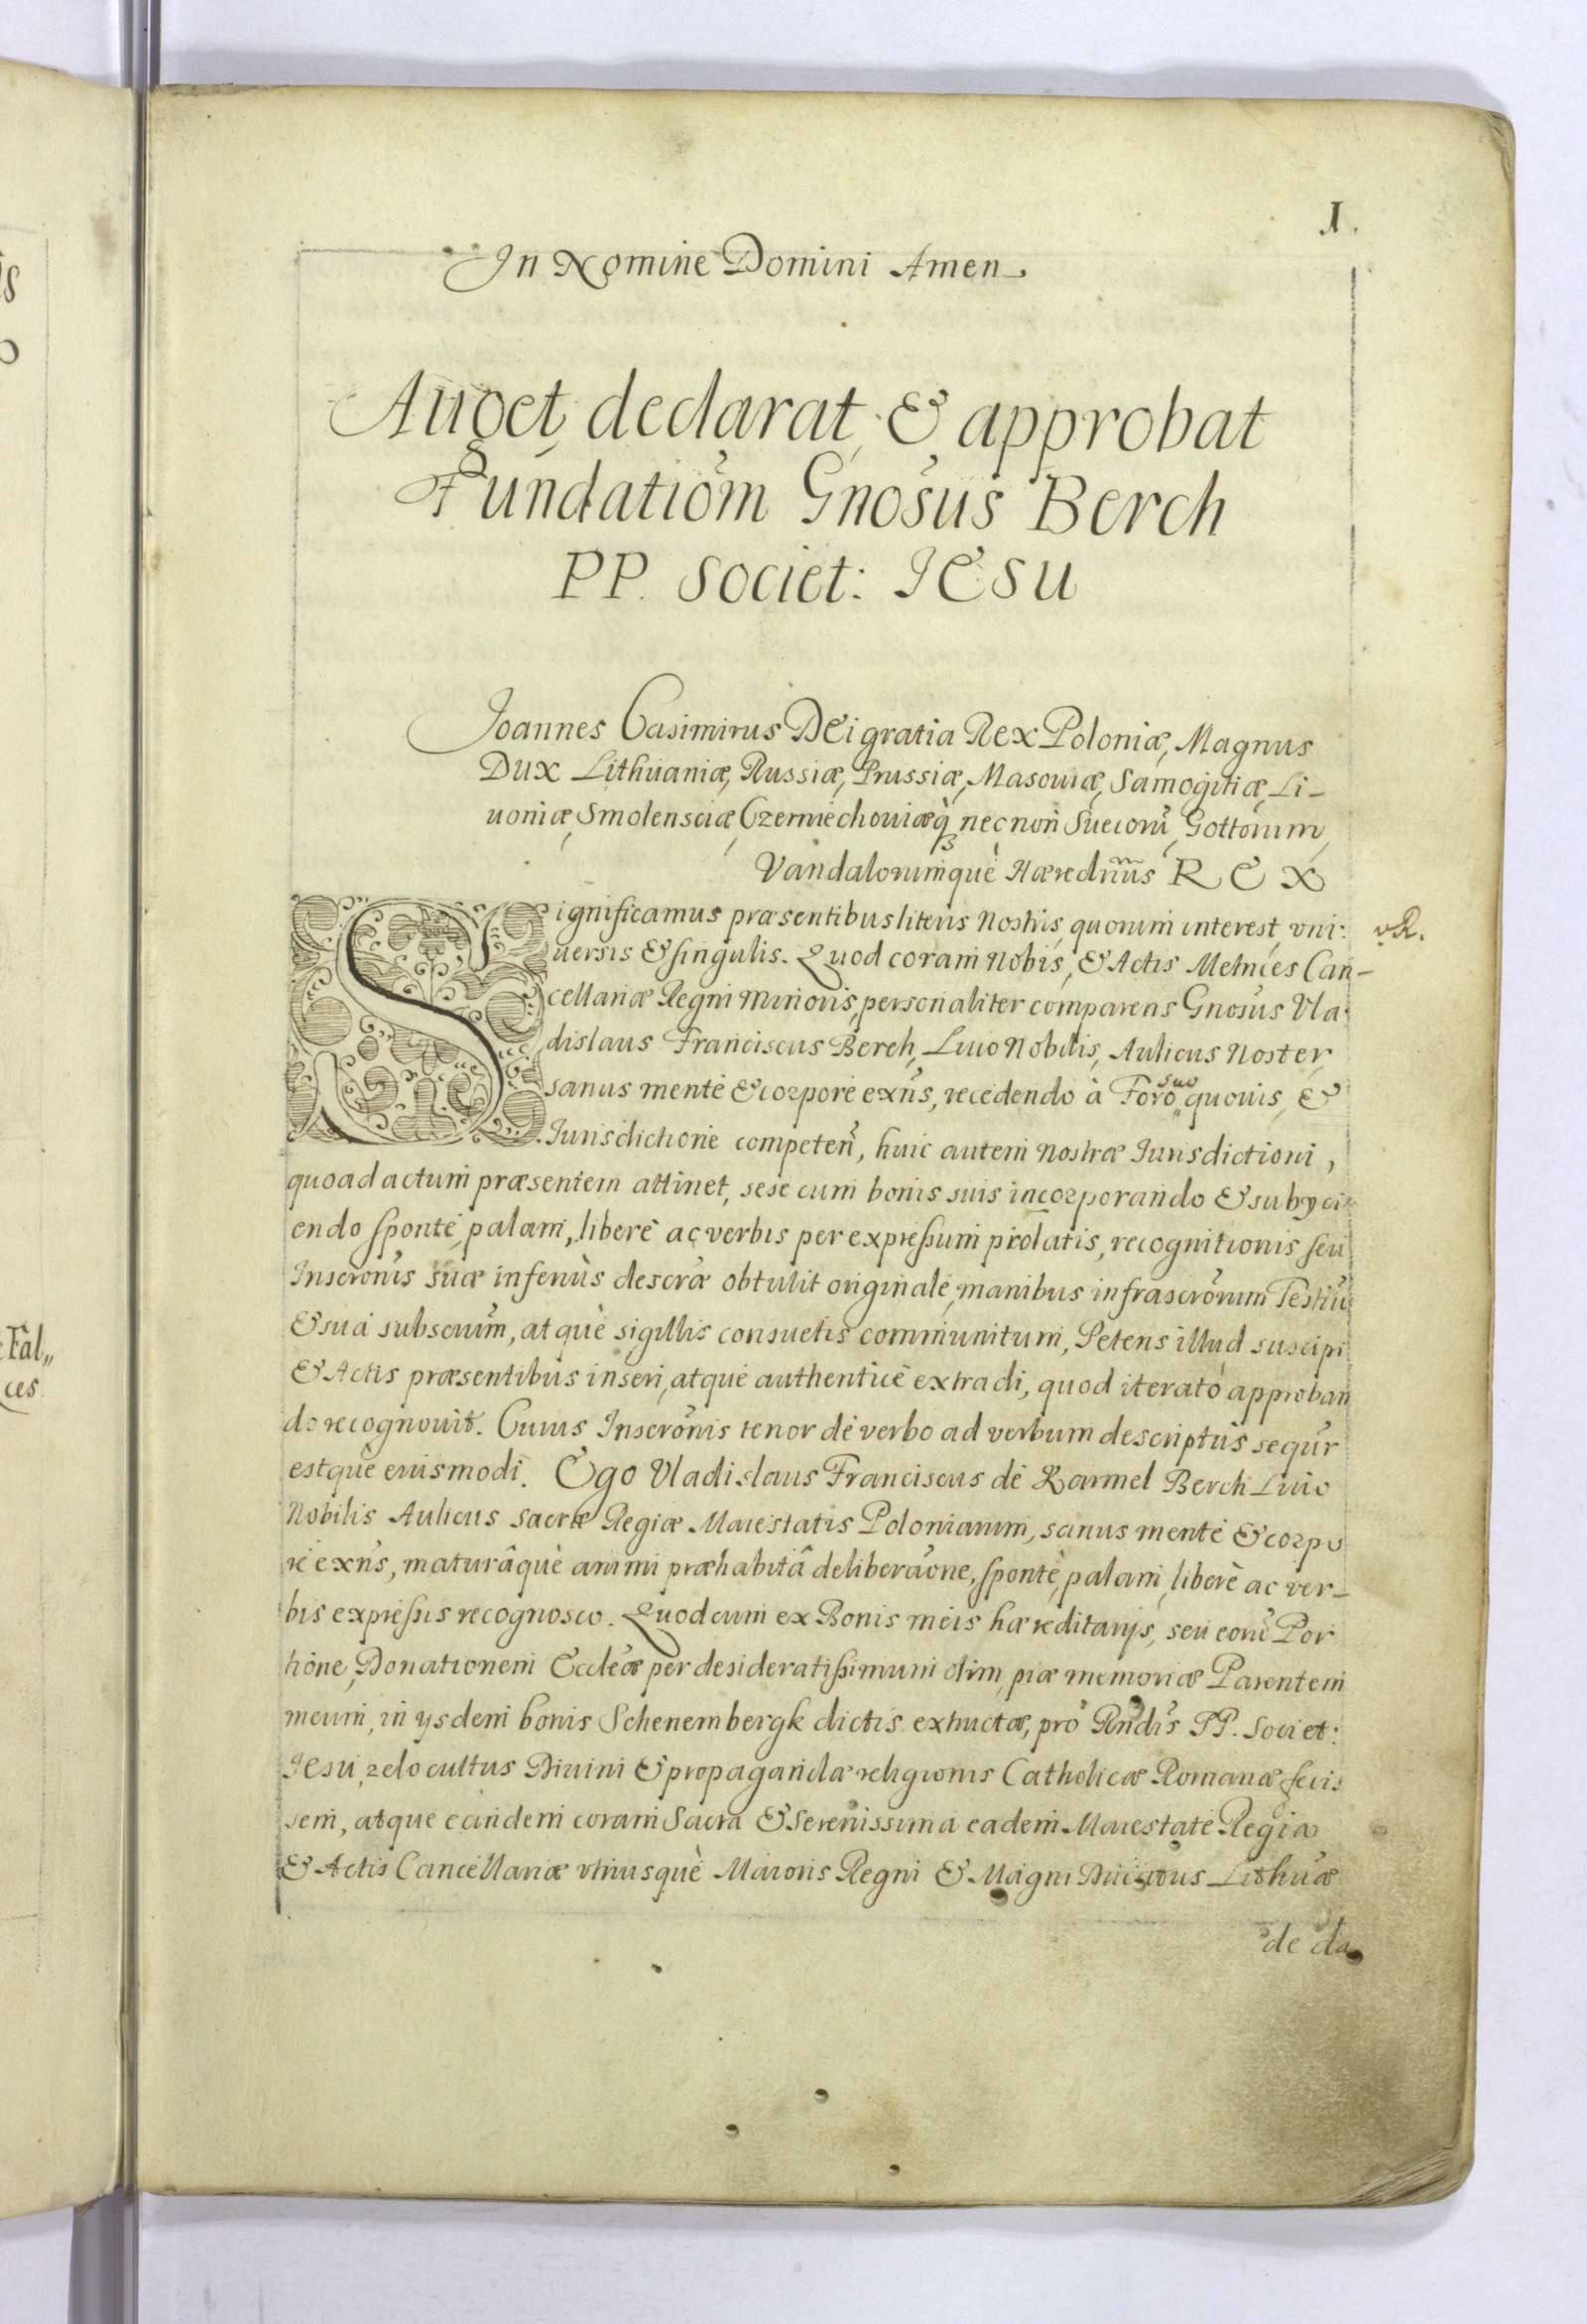 1.
In Nomine Domini Amen
Auget, declarat, & approbat
Fundatiom̃ Gnosus Berch
PP. Societ: IESU
Joannes Casimirus DEi gratia Rex Poloniæ, Magnus
Dux Lithuaniæ, Russiæ, Prussiæ, Masouiæ, Samogitiæ, Li-
uoniæ, Smolensciæ, Czerniechouiæq̀, nec non Suecorũ, Gottorum,
Vandalorumquè Hæredñus REX
Significamus præsentibus literis Nostris, quorum interest, vni:
uersis & singulis. Quod coram Nobis, & Actis Metrices Can-
cellariæ Regni Minoris, personaliter comparens Gnosus Vla-
dislaus Franciscus Berch, Liuo Nobilis, Aulicus Noster,
sanus mente & corpore exñs, recedendo à Foro suo quouis, &
Iurisdictione competeñ, huic autem nostræ Iurisdictioni,
quoad actum præsentem attinet, sese cum bonis suis incorporando & subyci-
endo sponte, palam, liberè ac verbis per expressum prolatis, recognitionis seu
Inscronis suæ inferiùs descræ obtulit originale, manibus infrascronum Testiũ
& suá subscrium, atquè sigillis consuetis communitum, Petens illud suscipi
& Actis præsentibus inseri, atque authenticè extradi, quod iterato approban
do recognouit. Cuius Inscronis tenor de verbo ad verbum descriptus sequr
estque eiusmodi. Ego Vladislaus Franciscus de Karmel Berch Liuo
Nobilis Aulicus Sacræ Regiæ Maiestatis Poloniarum, sanus mente & corpo
re exñs, maturâquè animi præhabitâ deliberaone, sponte, palam, liberè ac ver-
bis expressis recognosco. Quod cum ex Bonis meis hæreditarijs, seu eorũ Por
tione, Donationem Eccleæ per desideratissimum olim, piæ memoriæ Parentem
meum, in ysdem bonis Schenembergk dictis extructæ, pro Rndis PP. Societ:
IESU, zelo cultus Diuini & propagandæ religionis Catholicæ Romanæ fecis
sem, atque eandem coram Sacra & Serenissima eadem Maiestate Regia
& Actis Cancellariæ vtriusquè Maioris Regni & Magni Ducatus Lithuæ
de da
v R.
Fal„
ces